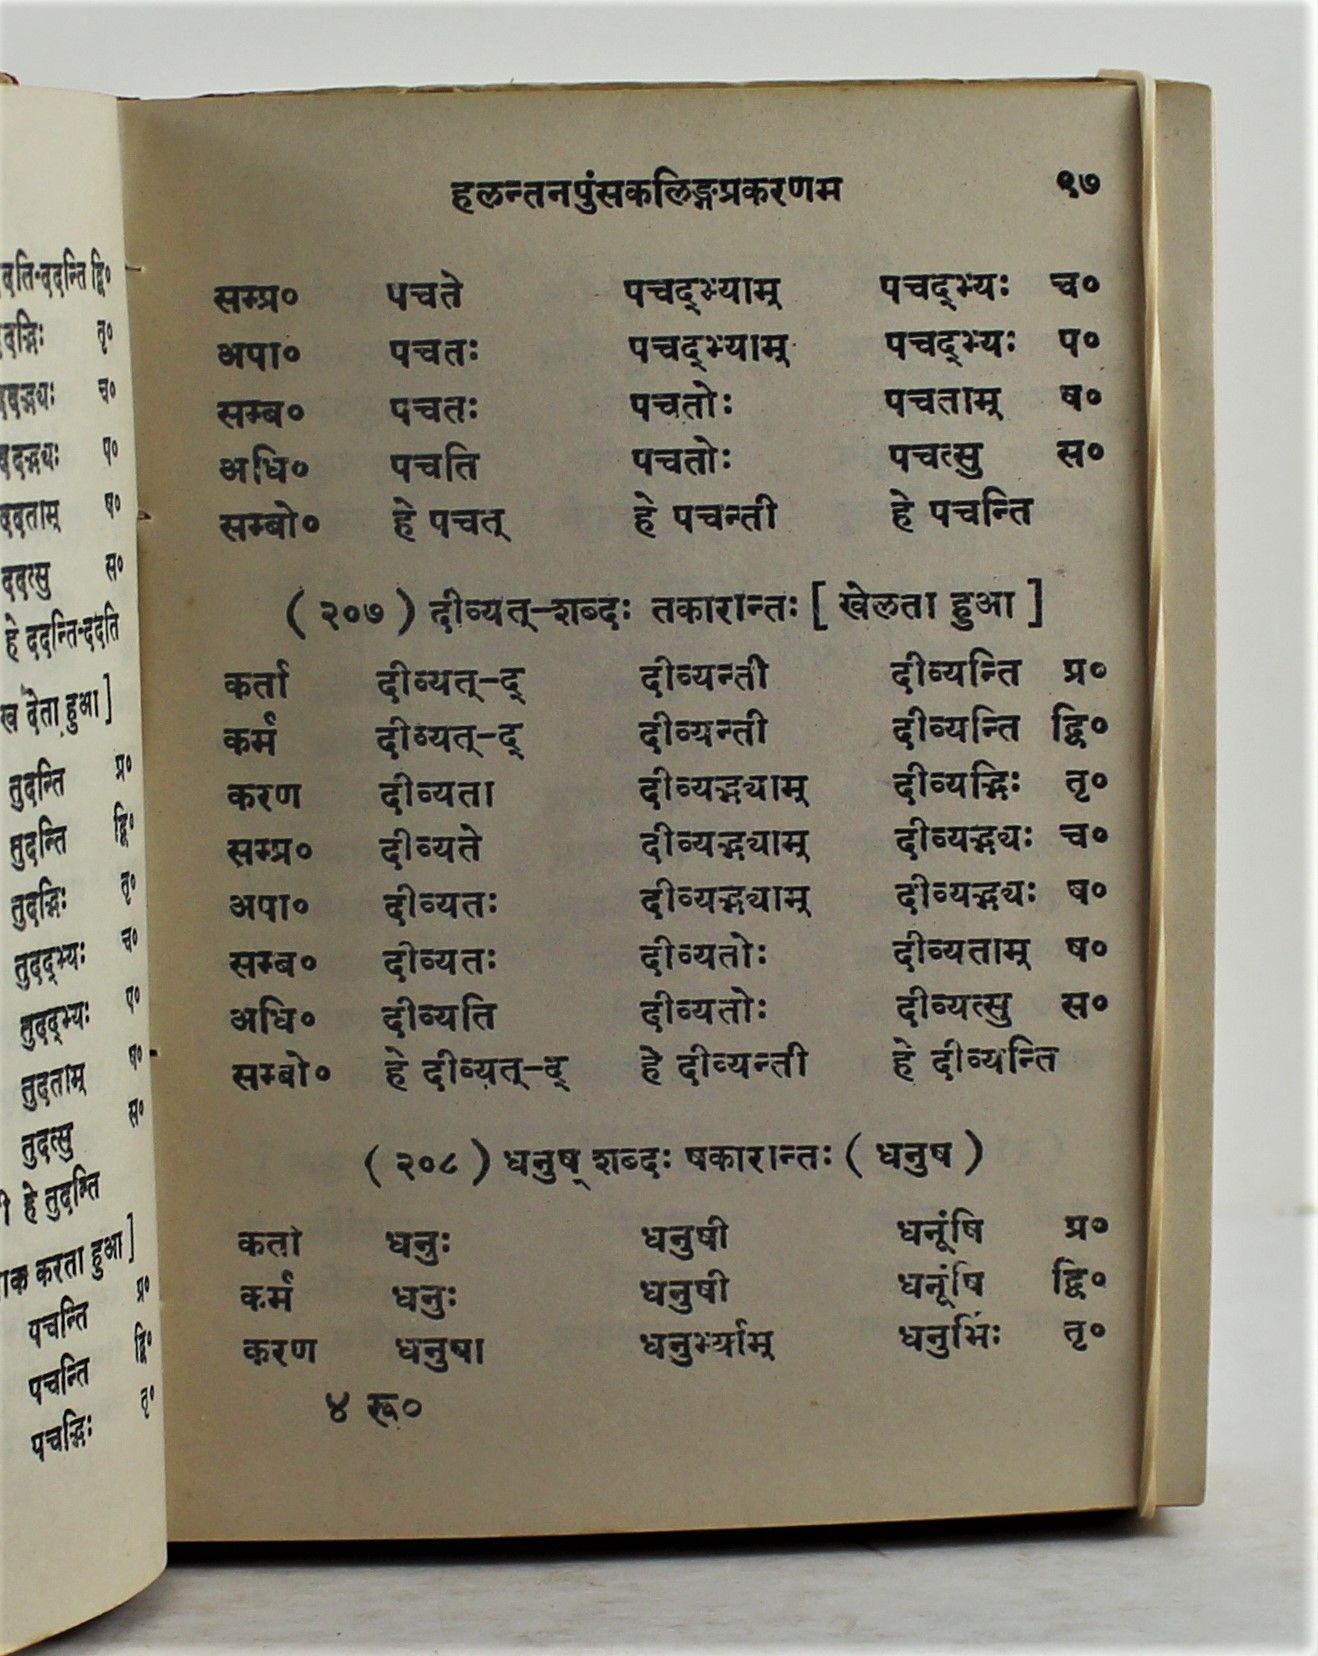 दति-ददन्ति द्वि०
तृ०
च०
प०
ददताम् ष०
ददत्सु स०
हे ददन्ति-ददति
देता हुआ ]
तुदन्ति प्र०
तुदन्ति द्वि०
तुदद्भिः तृ०
तुदद्भ्यः च०
तुदद्भ्यः प०
तुदताम् ष०
तुदत्सु स०
हे तुदन्ति
करता हुआ ]
पचन्ति प्र०
पचन्ति द्वि०
पचद्भिः तृ०
हलन्तनपुंसकलिङ्गप्रकरणम ९७
सम्प्र० पचते पचद्भ्याम् पचद्भ्यः च०
अपा० पचतः पचद्भ्याम् पचद्भ्यः प०
सम्ब० पचतः पचतोः पचताम् ष०
अधि० पचति पचतोः पचत्सु स०
सम्बो० हे पचत् हे पचन्ती हे पचन्ति
( २०७ ) दीव्यत्-शब्दः तकारान्तः [ खेलता हुआ ]
कर्ता दीव्यत्-द् दीव्यन्ती दीव्यन्ति प्र०
कर्म दीव्यत्-द् दीव्यन्ती दीव्यन्ति द्वि०
करण दीव्यता दीव्यद्भ्याम् दीव्यद्भिः तृ०
सम्प्र० दीव्यते दीव्यद्भ्याम् दीव्यद्भ्यः च०
अपा० दीव्यतः दीव्यद्भ्याम् दीव्यद्भ्यः ष०
सम्ब० दीव्यतः दीव्यतोः दीव्यताम् ष०
अधि० दीव्यति दीव्यतोः दीव्यत्सु स०
सम्बो० हे दीव्यत्-द् हे दीव्यन्ती हे दीव्यन्ति
( २०८ ) धनुष् शब्दः षकारान्तः ( धनुष )
कर्ता धनुः धनुषी धनूंषि प्र०
कर्म धनुः धनुषी धनूंषि द्वि०
करण धनुषा धनुर्भ्याम् धनुर्भिः तृ०
४ रू०